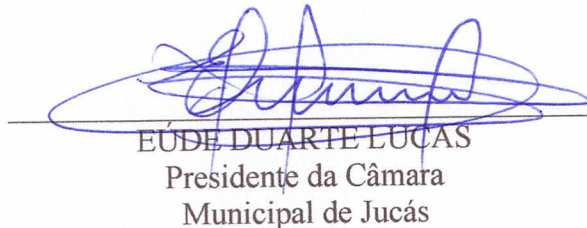 EÚDE DUARTE LUCAS
Presidente da Câmara
Municipal de Jucás